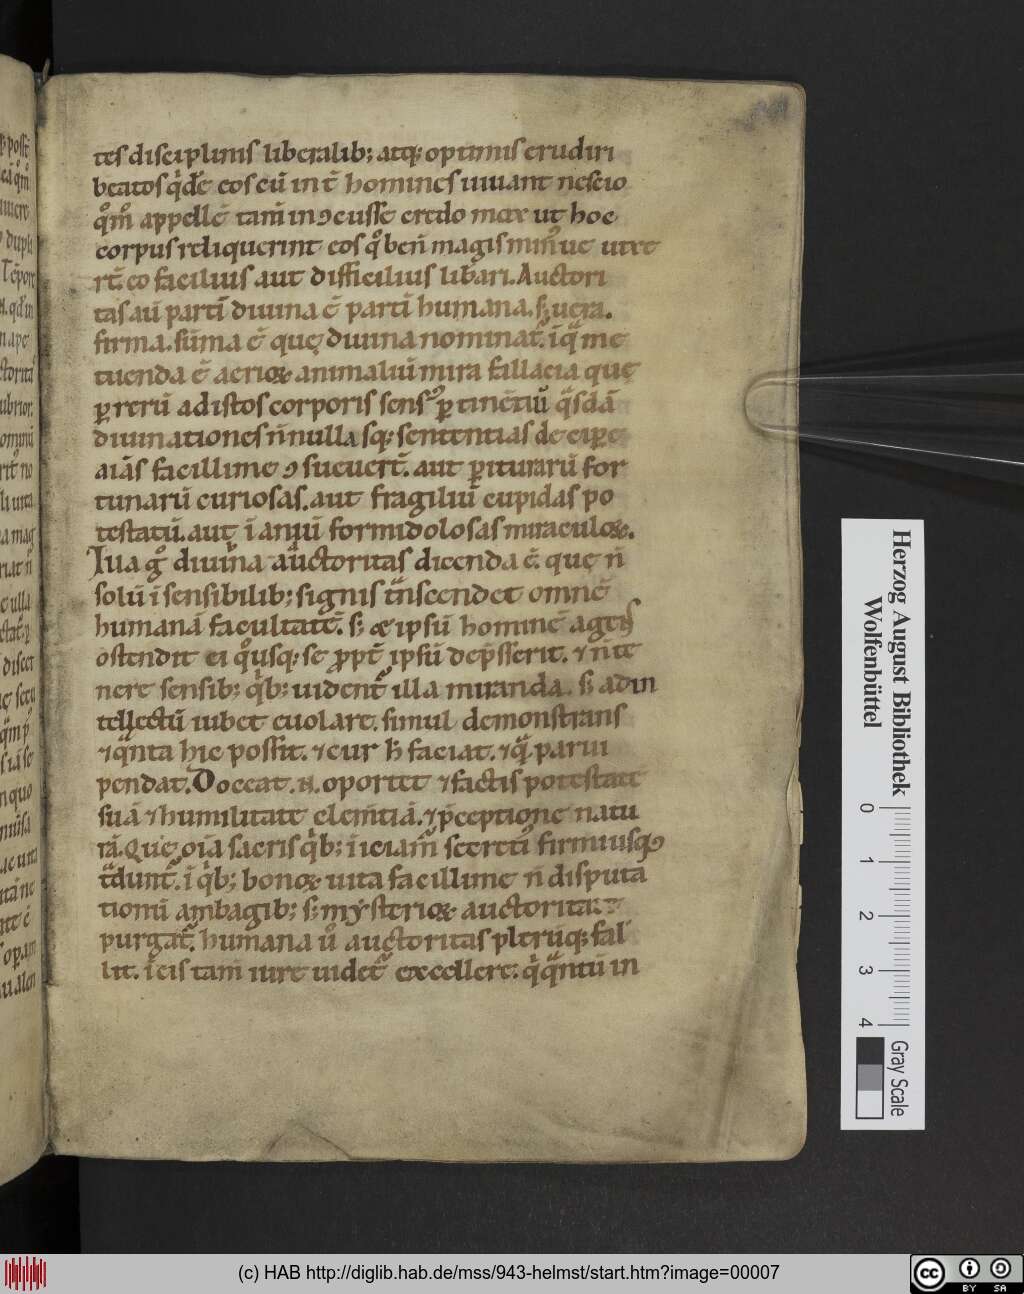 tes disciplinis liberalib; atq; optimis erudiri
beatos q̓dē. eos cū in t̄ homines uiuant nescio
q̊m̊ appellē tam̄ in ɔcusse credo mox ut hoc
corpus reliquerint eos q̊ ben̄ magis min̓ue uixe
rt̄. eo facilius aut difficilius lib̄ari. Auctori
tas aū partī diuina ē partī humana. s; uera.
firma. sūma ē quę diuina nominat̄. ī q̄ me
tuenda ē aerioꝝ animaliū mira fallacia quę
ꝑ rerū ad istos corporis sens᷒ ꝑtinētiū q̄sdā
diuinationes n̄nullasq; sententias decipe
aīas facillime ɔsueuert̄. aut ꝑiturarū for
tunarū curiosas. aut fragiliū cupidas po
testatū. aut īaniū formidolosas miraculoꝝ.
Illa g̊ diuina auctoritas dicenda ē. quę n̄
solū ī sensibilib; signis t̄nscendet omnē
humanā facultatē. s; & ipsū hominē agens
ostendit ei q̊usq; se ꝓpt̄ ipsū dep̄sserit. & n̄ te
nere sensib; q̓b; uident̄ illa miranda. s; ad in
tellectū iubet euolare. simul demonstrans
& q̄nta hic possit. & cur h̄ faciat. & q̄ parui
pendat. Doceat .n. oportet & factis potestatē
suā & humilitate clem̄tiā. & p̄ceptione natu
rā. Quę oīa sacris q̓b; īiciam̄ secreti᷒ firmiusq;
t̄dunt̄. ī q̓b; bonoꝝ uita facillime n̄ disputa
tionū ambagib; s; mysterioꝝ auctoritate
purgat̄. humana ů auctoritas plerūq; fal
lit. ī eis tam̄ iure uidet̄ excellere. q̓ q̄ntū in
Herzog August Bibliothek
Wolfenbüttel
0 1 2 3 4
Gray Scale
(c) HAB http://diglib.hab.de/mss/943-helmst/start.htm?image=00007
cc BY SA